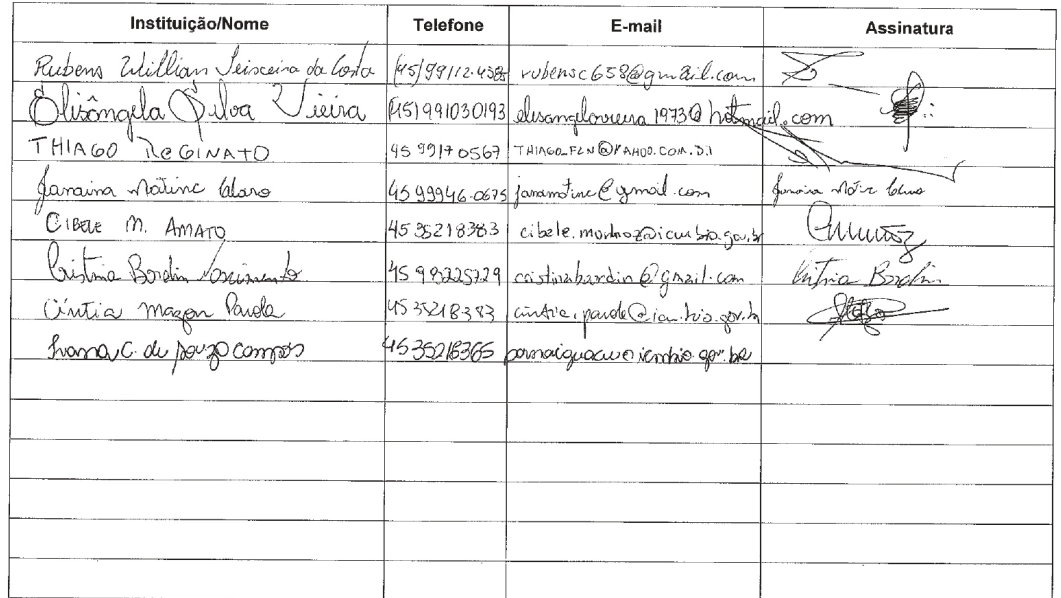 Instituição/Nome Telefone E-mail Assinatura
Rubens Willian Teixeira da Costa (45)99112-4385 rubensc658@gmail.com
Elisângela Silva Vieira (45)991030193 elisangelavieira1973@hotmail.com
THIAGO REGINATO 45 99170567 THIAGO_FLN@YAHOO.COM.
Janaina Matine 45 99946-0675 janamatine@gmail.com Janaina
CIBELE M. AMATO 45 35218383 cibele.munhoz@icmbio.gov.br
Cristina Bordin Nascimento 45 98225729 cristinabordin@gmail.com Bordin
Cíntia Mazon Parola 45 35218383 cintia.parola@icmbio.gov.br
Ivana C. de Souza Campos 45 35218365 parnaiguacu@icmbio.gov.br